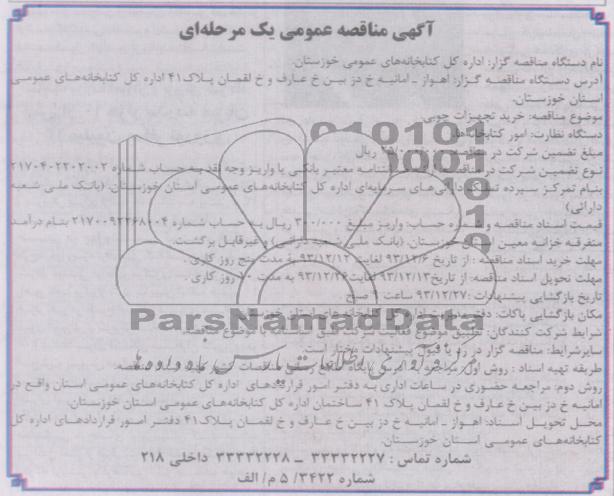 آگهی مناقصه عمومی یک مرحله‌ای
نام دستگاه مناقصه گزار: اداره کل کتابخانه‌های عمومی خوزستان.
آدرس دستگاه مناقصه گزار: اهواز ـ امانیه خ دز بین خ عارف و خ لقمان پلاک ۴۱ اداره کل کتابخانه‌های عمومی
استان خوزستان.
موضوع مناقصه: خرید تجهیزات چوبی.
دستگاه نظارت: امور کتابخانه‌ها.
مبلغ تضمین شرکت در مناقصه: ریال
نوع تضمین شرکت در مناقصه: ضمانتنامه معتبر بانکی یا واریز وجه نقد به حساب شماره ۲۱۷۰۴۰۲۲۰۲۰۰۲
بنام تمرکز سپرده تملک دارائی‌های سرمایه‌ای اداره کل کتابخانه‌های عمومی استان خوزستان. (بانک ملی شعبه
دارائی)
قیمت اسناد مناقصه و شماره حساب: واریز مبلغ ۳۰۰/۰۰۰ ریال به حساب شماره بنام درآمد
متفرقه خزانه معین استان خوزستان. (بانک ملی شعبه دارائی) و غیرقابل برگشت.
مهلت خرید اسناد مناقصه : از تاریخ ۹۳/۱۲/۶ لغایت ۹۳/۱۲/۱۲ به مدت پنج روز کاری .
مهلت تحویل اسناد مناقصه: از تاریخ ۹۳/۱۲/۱۳ لغایت ۹۳/۱۲/۲۶ به مدت ۱۰ روز کاری .
تاریخ بازگشایی پیشنهادات : ۹۳/۱۲/۲۷ ساعت ۹ صبح
مکان بازگشایی پاکات: دفتر مدیریت اداره کل کتابخانه های استان خوزستان
شرایط شرکت کنندگان: تطبیق موضوع فعالیت شرکت با موضوع مناقصه.
سایرشرایط: مناقصه گزار در رد یا قبول پیشنهادات مختار است.
طریقه تهیه اسناد : روش اول: مناقصه.
روش دوم: مراجعه حضوری در ساعات اداری به دفتر امور قراردادهای اداره کل کتابخانه‌های عمومی استان واقع در
امانیه خ دز بین خ عارف و خ لقمان پلاک ۴۱ ساختمان اداره کل کتابخانه‌های عمومی استان خوزستان.
محل تحویل اسناد: اهواز ـ امانیه خ دز بین خ عارف و خ لقمان پلاک ۴۱ دفتر امور قراردادهای اداره کل
کتابخانه‌های عمومی استان خوزستان.
شماره تماس : ۳۳۳۳۲۲۲۷ ـ ۳۳۳۳۲۲۲۸ داخلی ۲۱۸
شماره ۵/۳۴۲۲ م/ الف
ParsNamadData
مرکز فرآوری اطلاعات پارس نماد داده ها